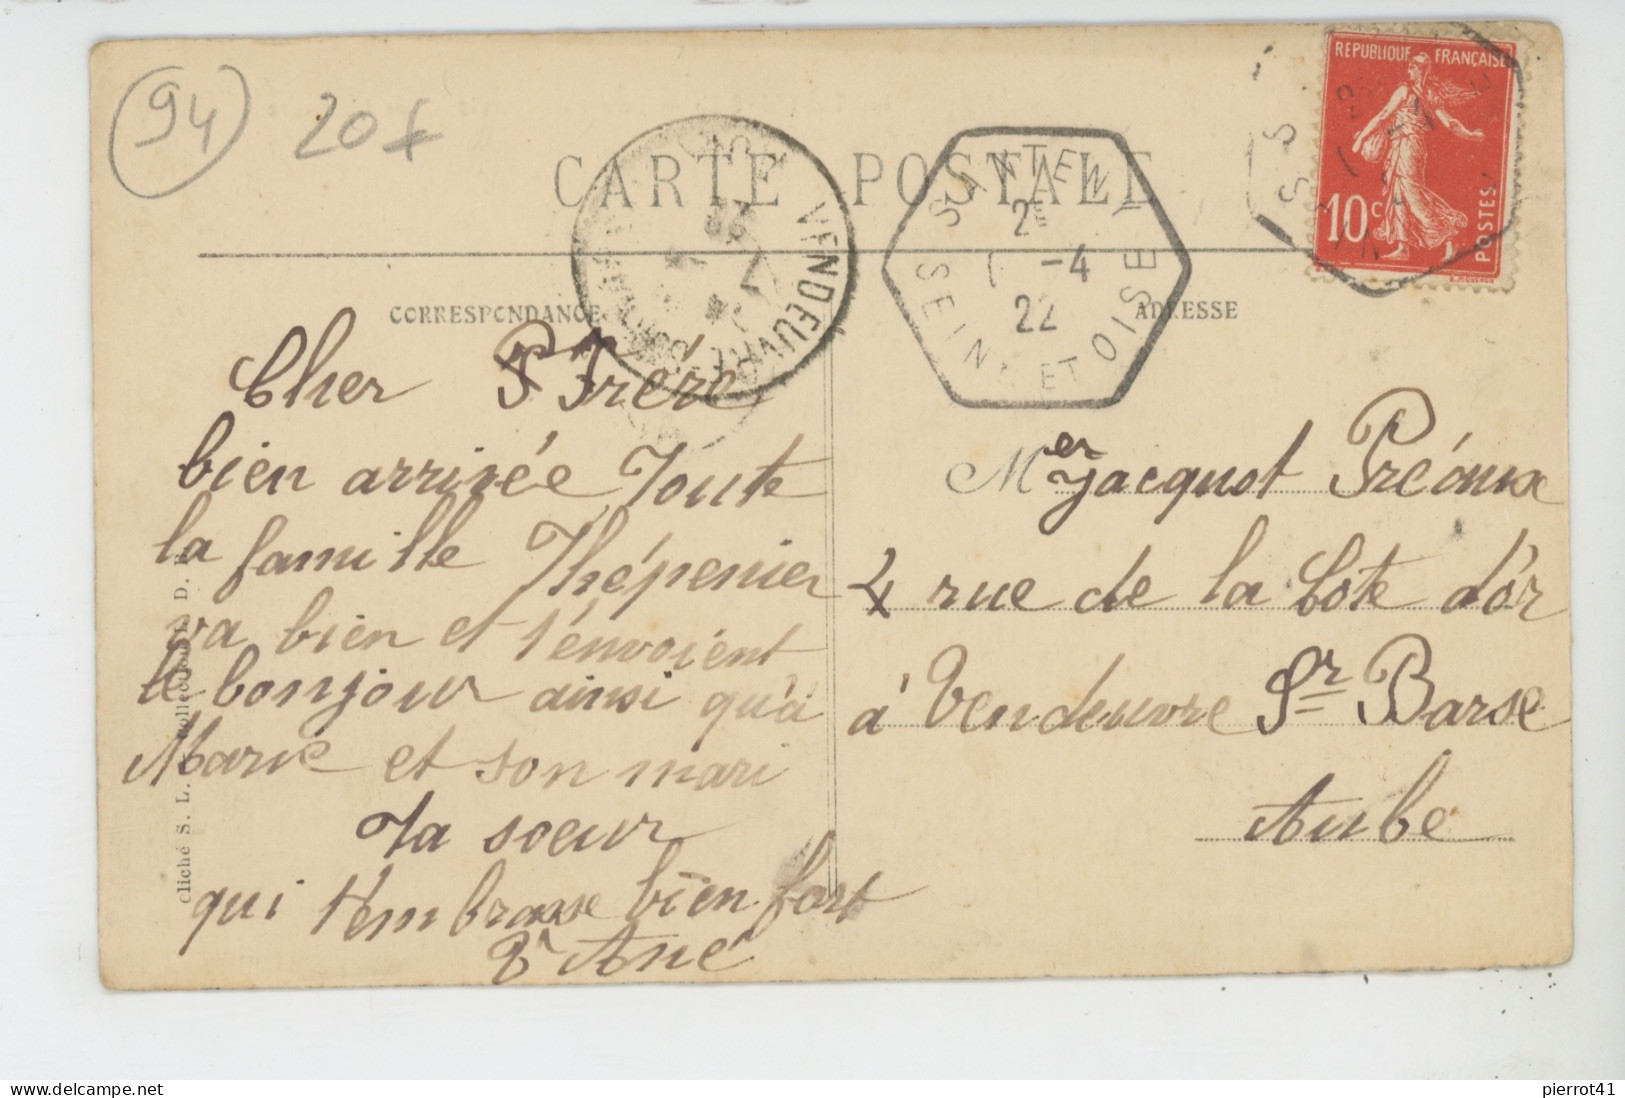 94
20f
CARTE POSTALE
REPUBLIQUE FRANÇAISE
10c
POSTES
VENDEUVRE
2E
-4
22
SEINE ET OISE
CORRESPONDANCE
ADRESSE
Cher P Frére
bien arrivée Toute
la famille Thépenier
va bien et t'envoient
le bonjour ainsi qu'à
Marie et son mari
Ta soeur
qui t'embrasse bien fort
Mer Jacquot Préaux
4 rue de la Cote d'or
à Vendeuvre Sr Barse
Aube
cliché S. L.
delcampe.net
pierrot41